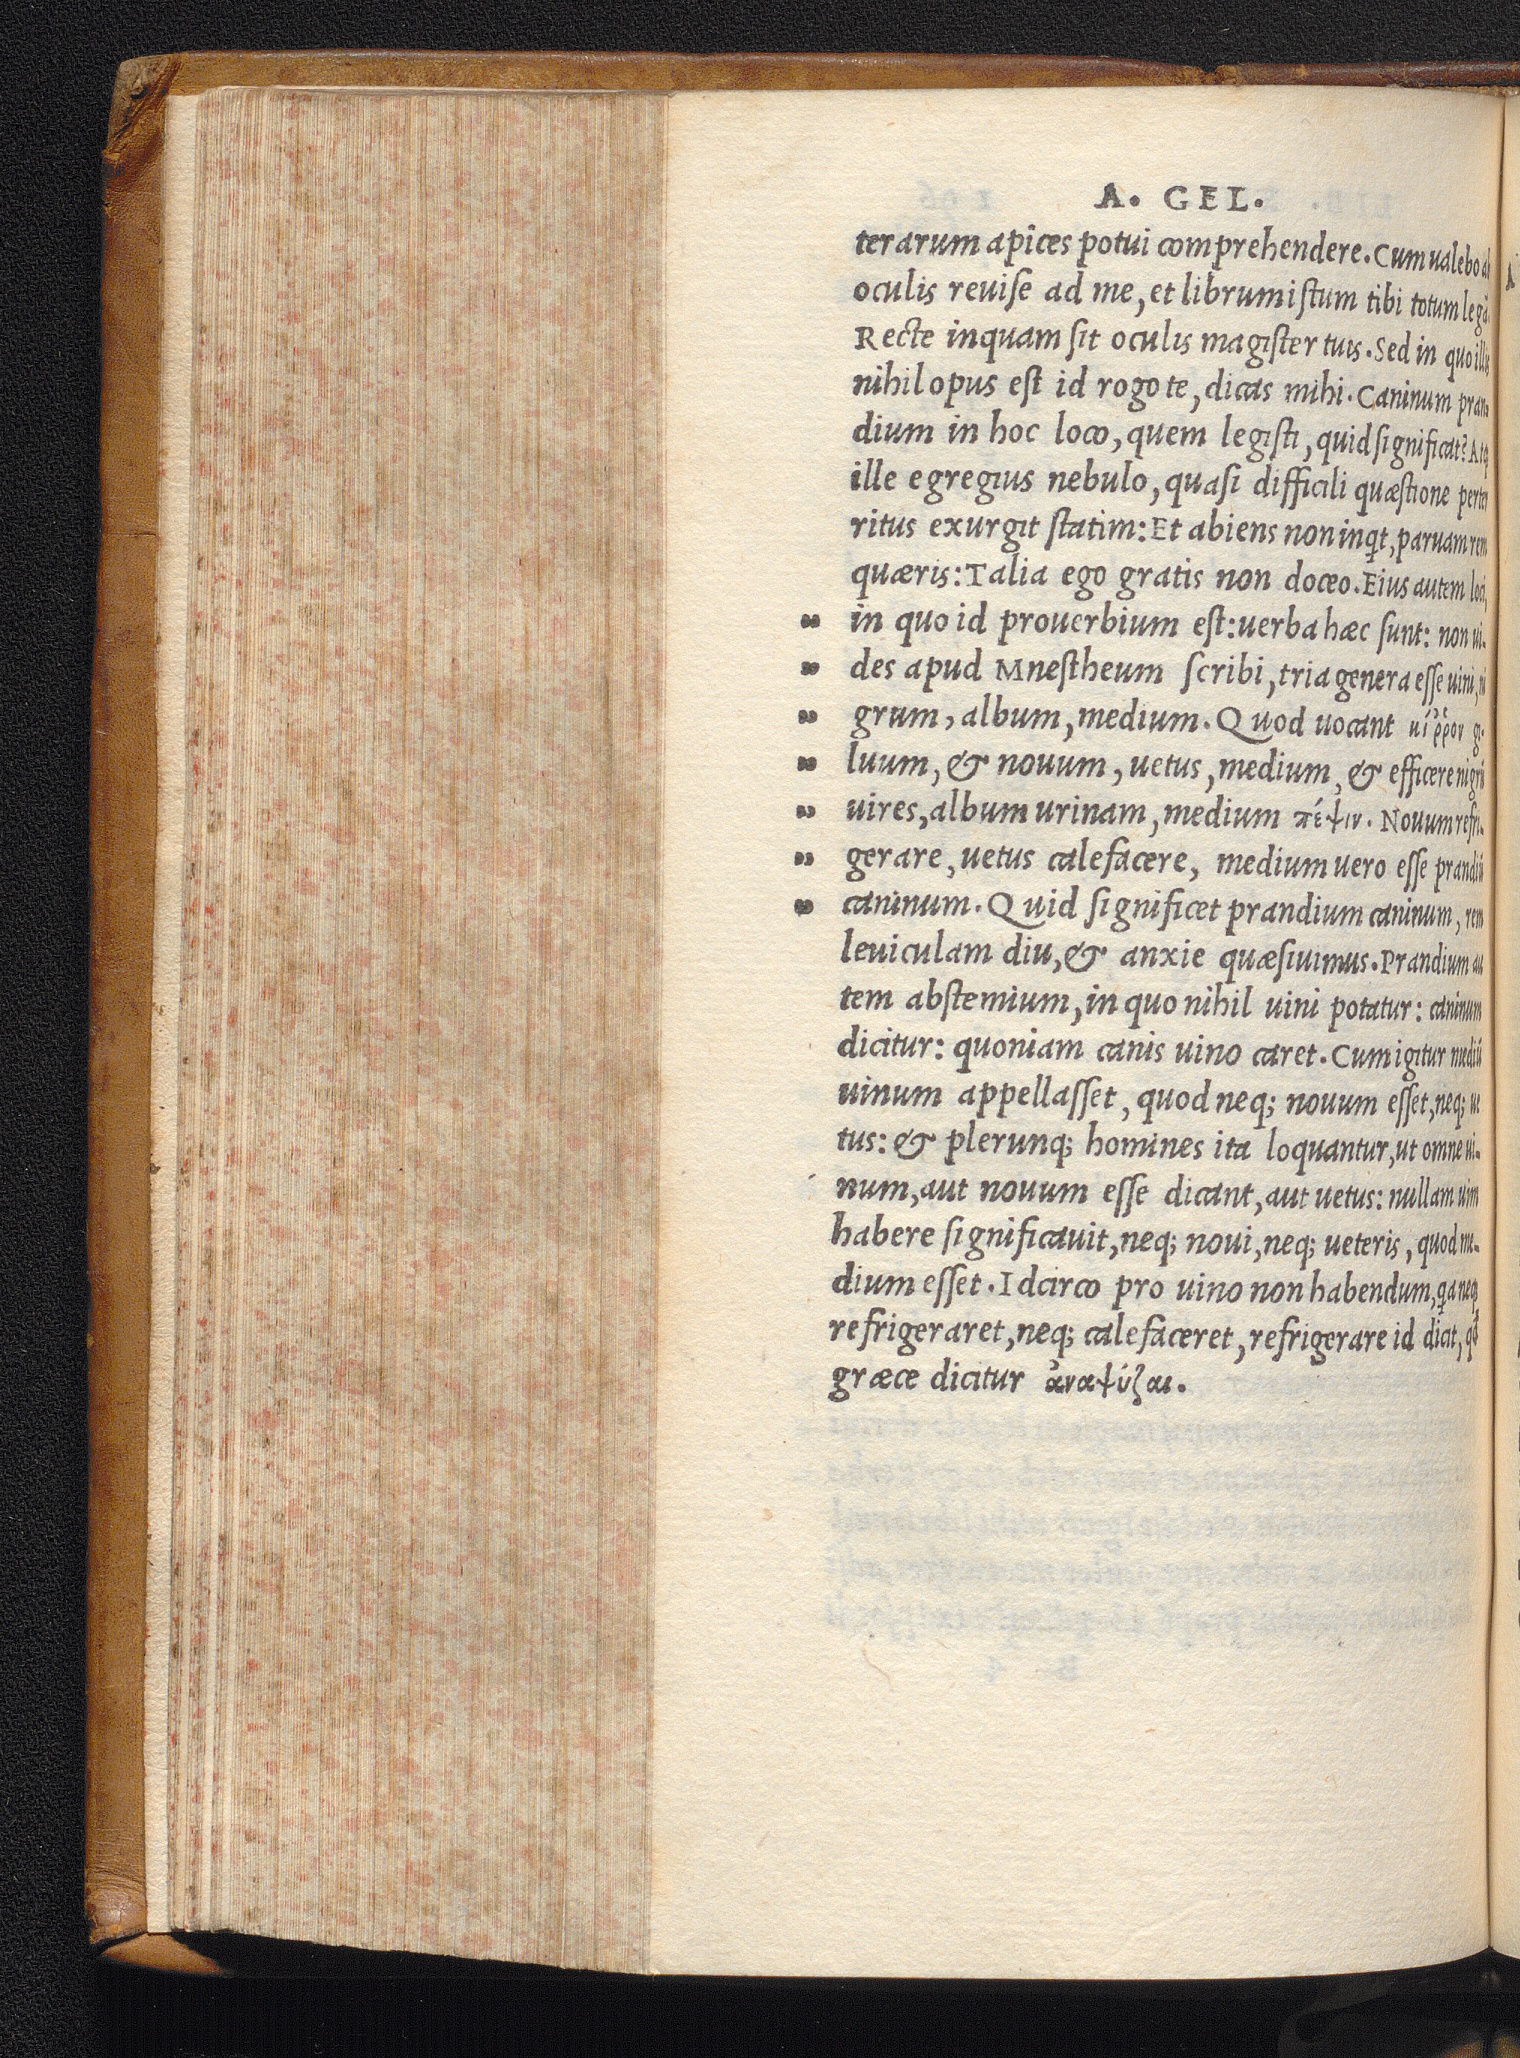 A. GEL.
terarum apices potui comprehendere. Cum ualebo ab
oculis reuise ad me, et librum istum tibi totum legā.
Recte inquam sit oculis magister tuis. Sed in quo illis
nihil opus est id rogo te, dicas mihi. Caninum pran-
dium in hoc loco, quem legisti, quid significat? Atq
ille egregius nebulo, quasi difficili quæstione perter
ritus exurgit statim: Et abiens non inqt, paruam rem
quæris: Talia ego gratis non doceo. Eius autem loci,
„ in quo id prouerbium est: uerba hæc sunt: non ui-
„ des apud Mnestheum scribi, tria genera esse uini, ni
„ grum, album, medium. Quod uocant κίῤῥον gi-
„ luum, & nouum, uetus, medium, & efficere nigrū
„ uires, album urinam, medium πέψιν. Nouum refri-
„ gerare, uetus calefacere, medium uero esse prandiū
„ caninum. Quid significet prandium caninum, rem
leuiculam diu, & anxie quæsiuimus. Prandium au
tem abstemium, in quo nihil uini potatur: caninum
dicitur: quoniam canis uino caret. Cum igitur mediū
uinum appellasset, quod neq; nouum esset, neq; ue
tus: & plerunq; homines ita loquantur, ut omne ui-
num, aut nouum esse dicant, aut uetus: nullam uim
habere significauit, neq; noui, neq; ueteris, quod me-
dium esset. Idcirco pro uino non habendum, qa neq
refrigeraret, neq; calefaceret, refrigerare id dicit, qd
græce dicitur ἀναψύξαι.